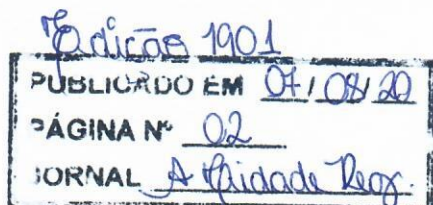 Edição 1901
PUBLICADO EM 07/08/20
PÁGINA Nº 02
JORNAL A Reg.